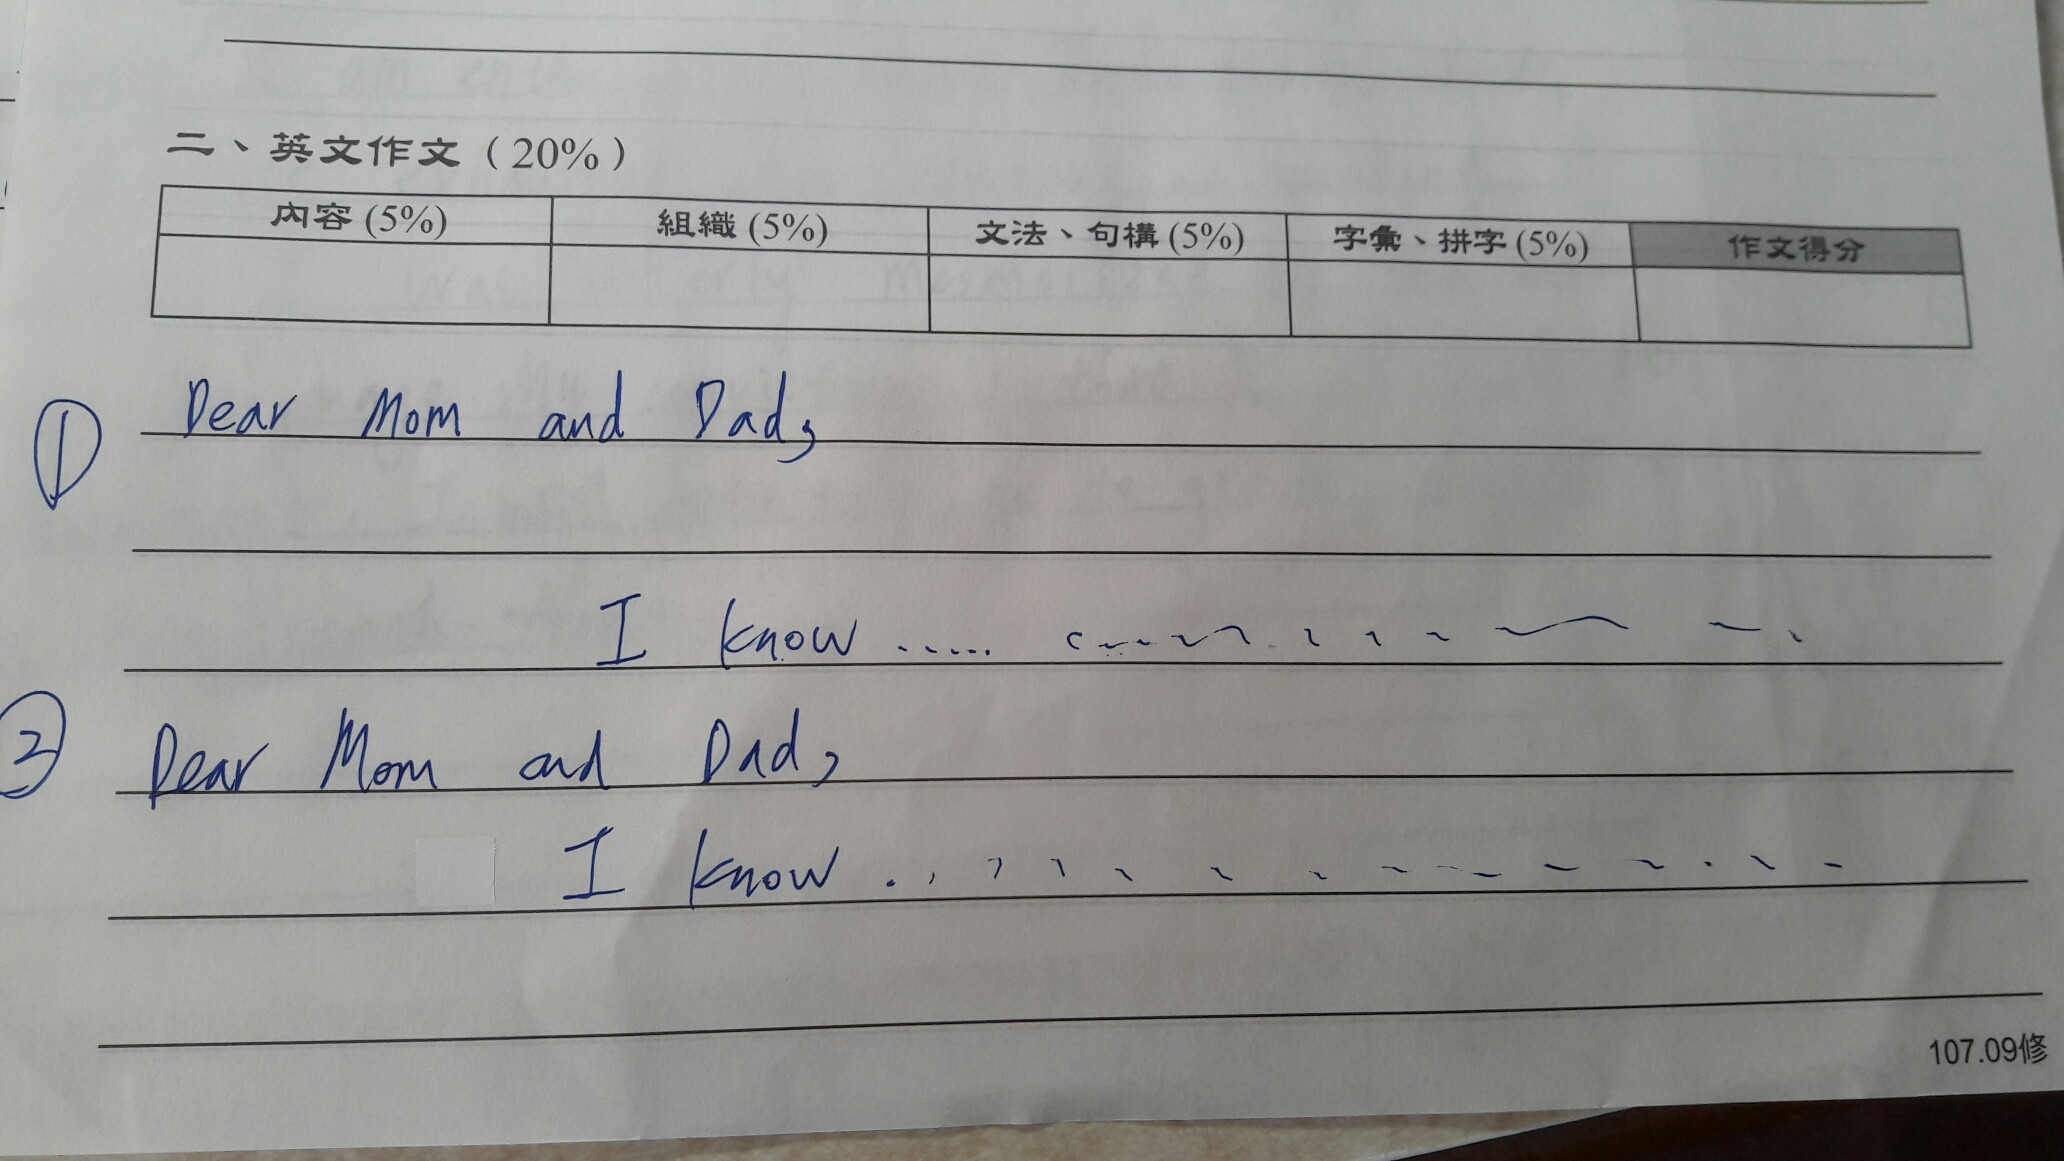 二、英文作文（20%）
內容 (5%) 組織 (5%) 文法、句構 (5%) 字彙、拼字 (5%) 作文得分
① Dear Mom and Dad,
I know .....
② Dear Mom and Dad,
I know .
107.09修